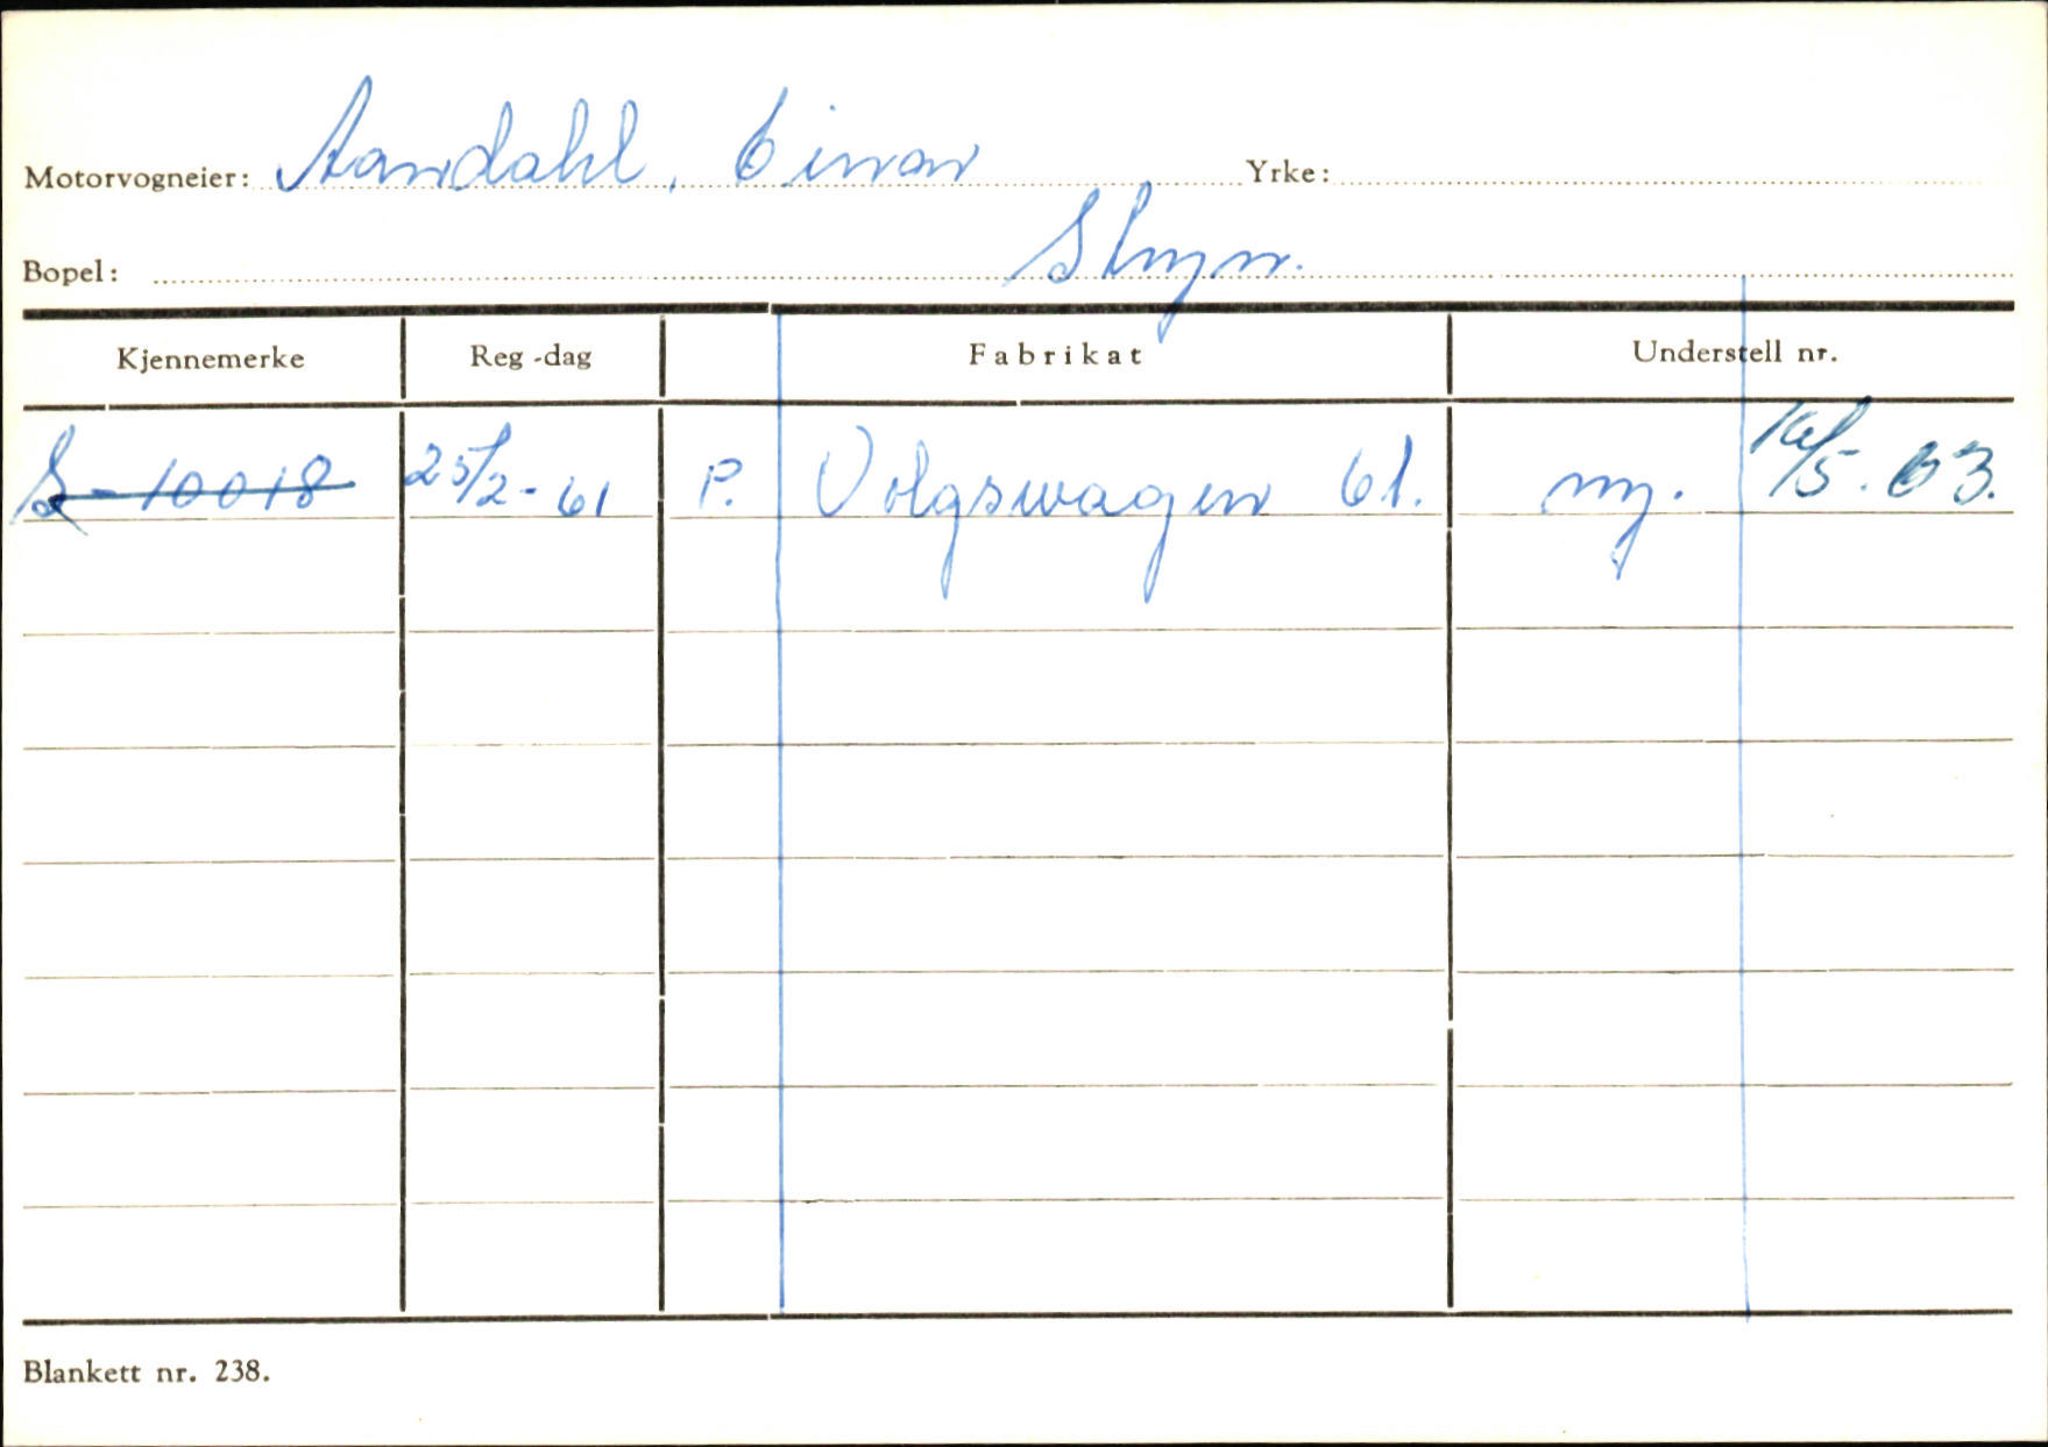 Motorvogneier: Aandahl, Einar Yrke:
Bopel: Stryn.
Kjennemerke Reg -dag Fabrikat Understell nr.
S-10018 25/2-61 P. Volgswagen 61. ny. 16/5.63.
Blankett nr. 238.